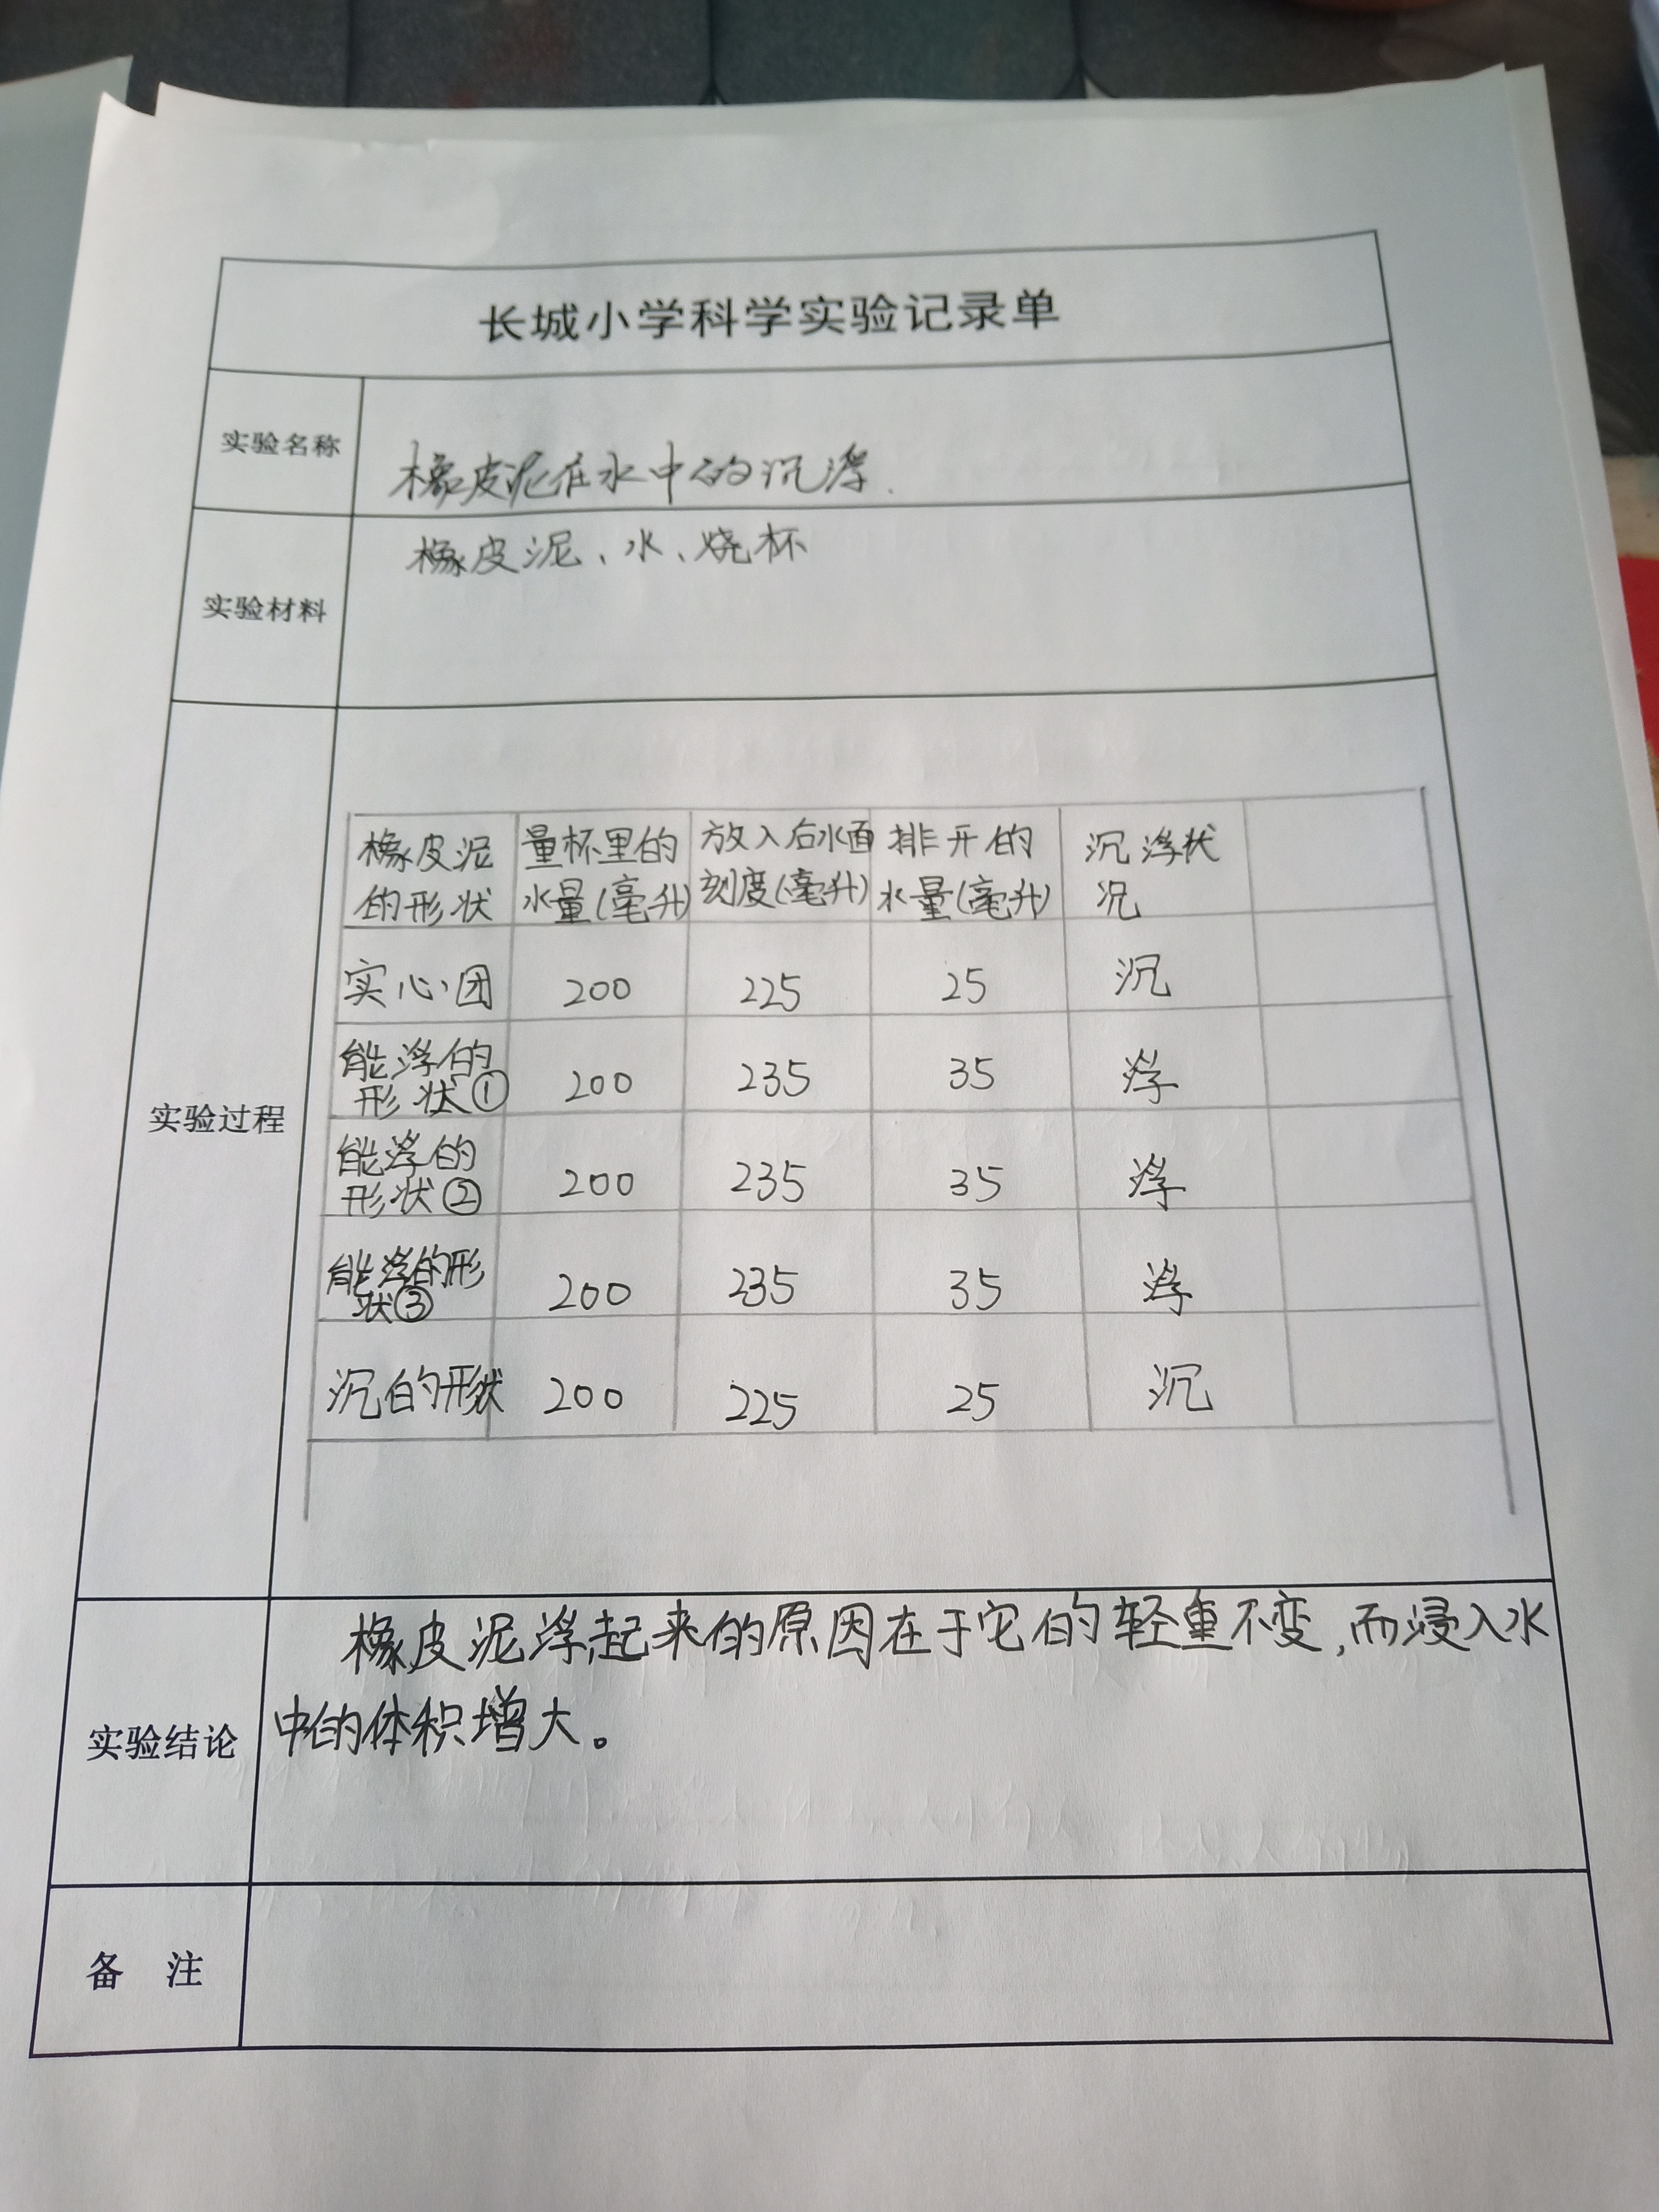 长城小学科学实验记录单
实验名称
橡皮泥在水中的沉浮.
实验材料
橡皮泥、水、烧杯
实验过程
橡皮泥的形状 量杯里的水量(毫升) 放入后水面刻度(毫升) 排开的水量(毫升) 沉浮状况
实心团 200 225 25 沉
能浮的形状① 200 235 35 浮
能浮的形状② 200 235 35 浮
能浮的形状③ 200 235 35 浮
沉的形状 200 225 25 沉
实验结论
橡皮泥浮起来的原因在于它的轻重不变,而浸入水
中的体积增大。
备 注